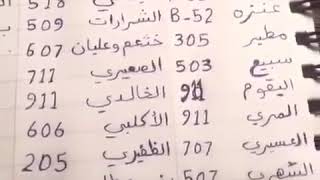 عنزه B-52 الشرارات 509
مطير 305 خثعم وعليان 607
سبيع 503 الصعيري 711
البقوم 911 الخالدي 911
المري 911 الأكلبي 606
العسيري 707 الظفيري 205
الشهري 507
518